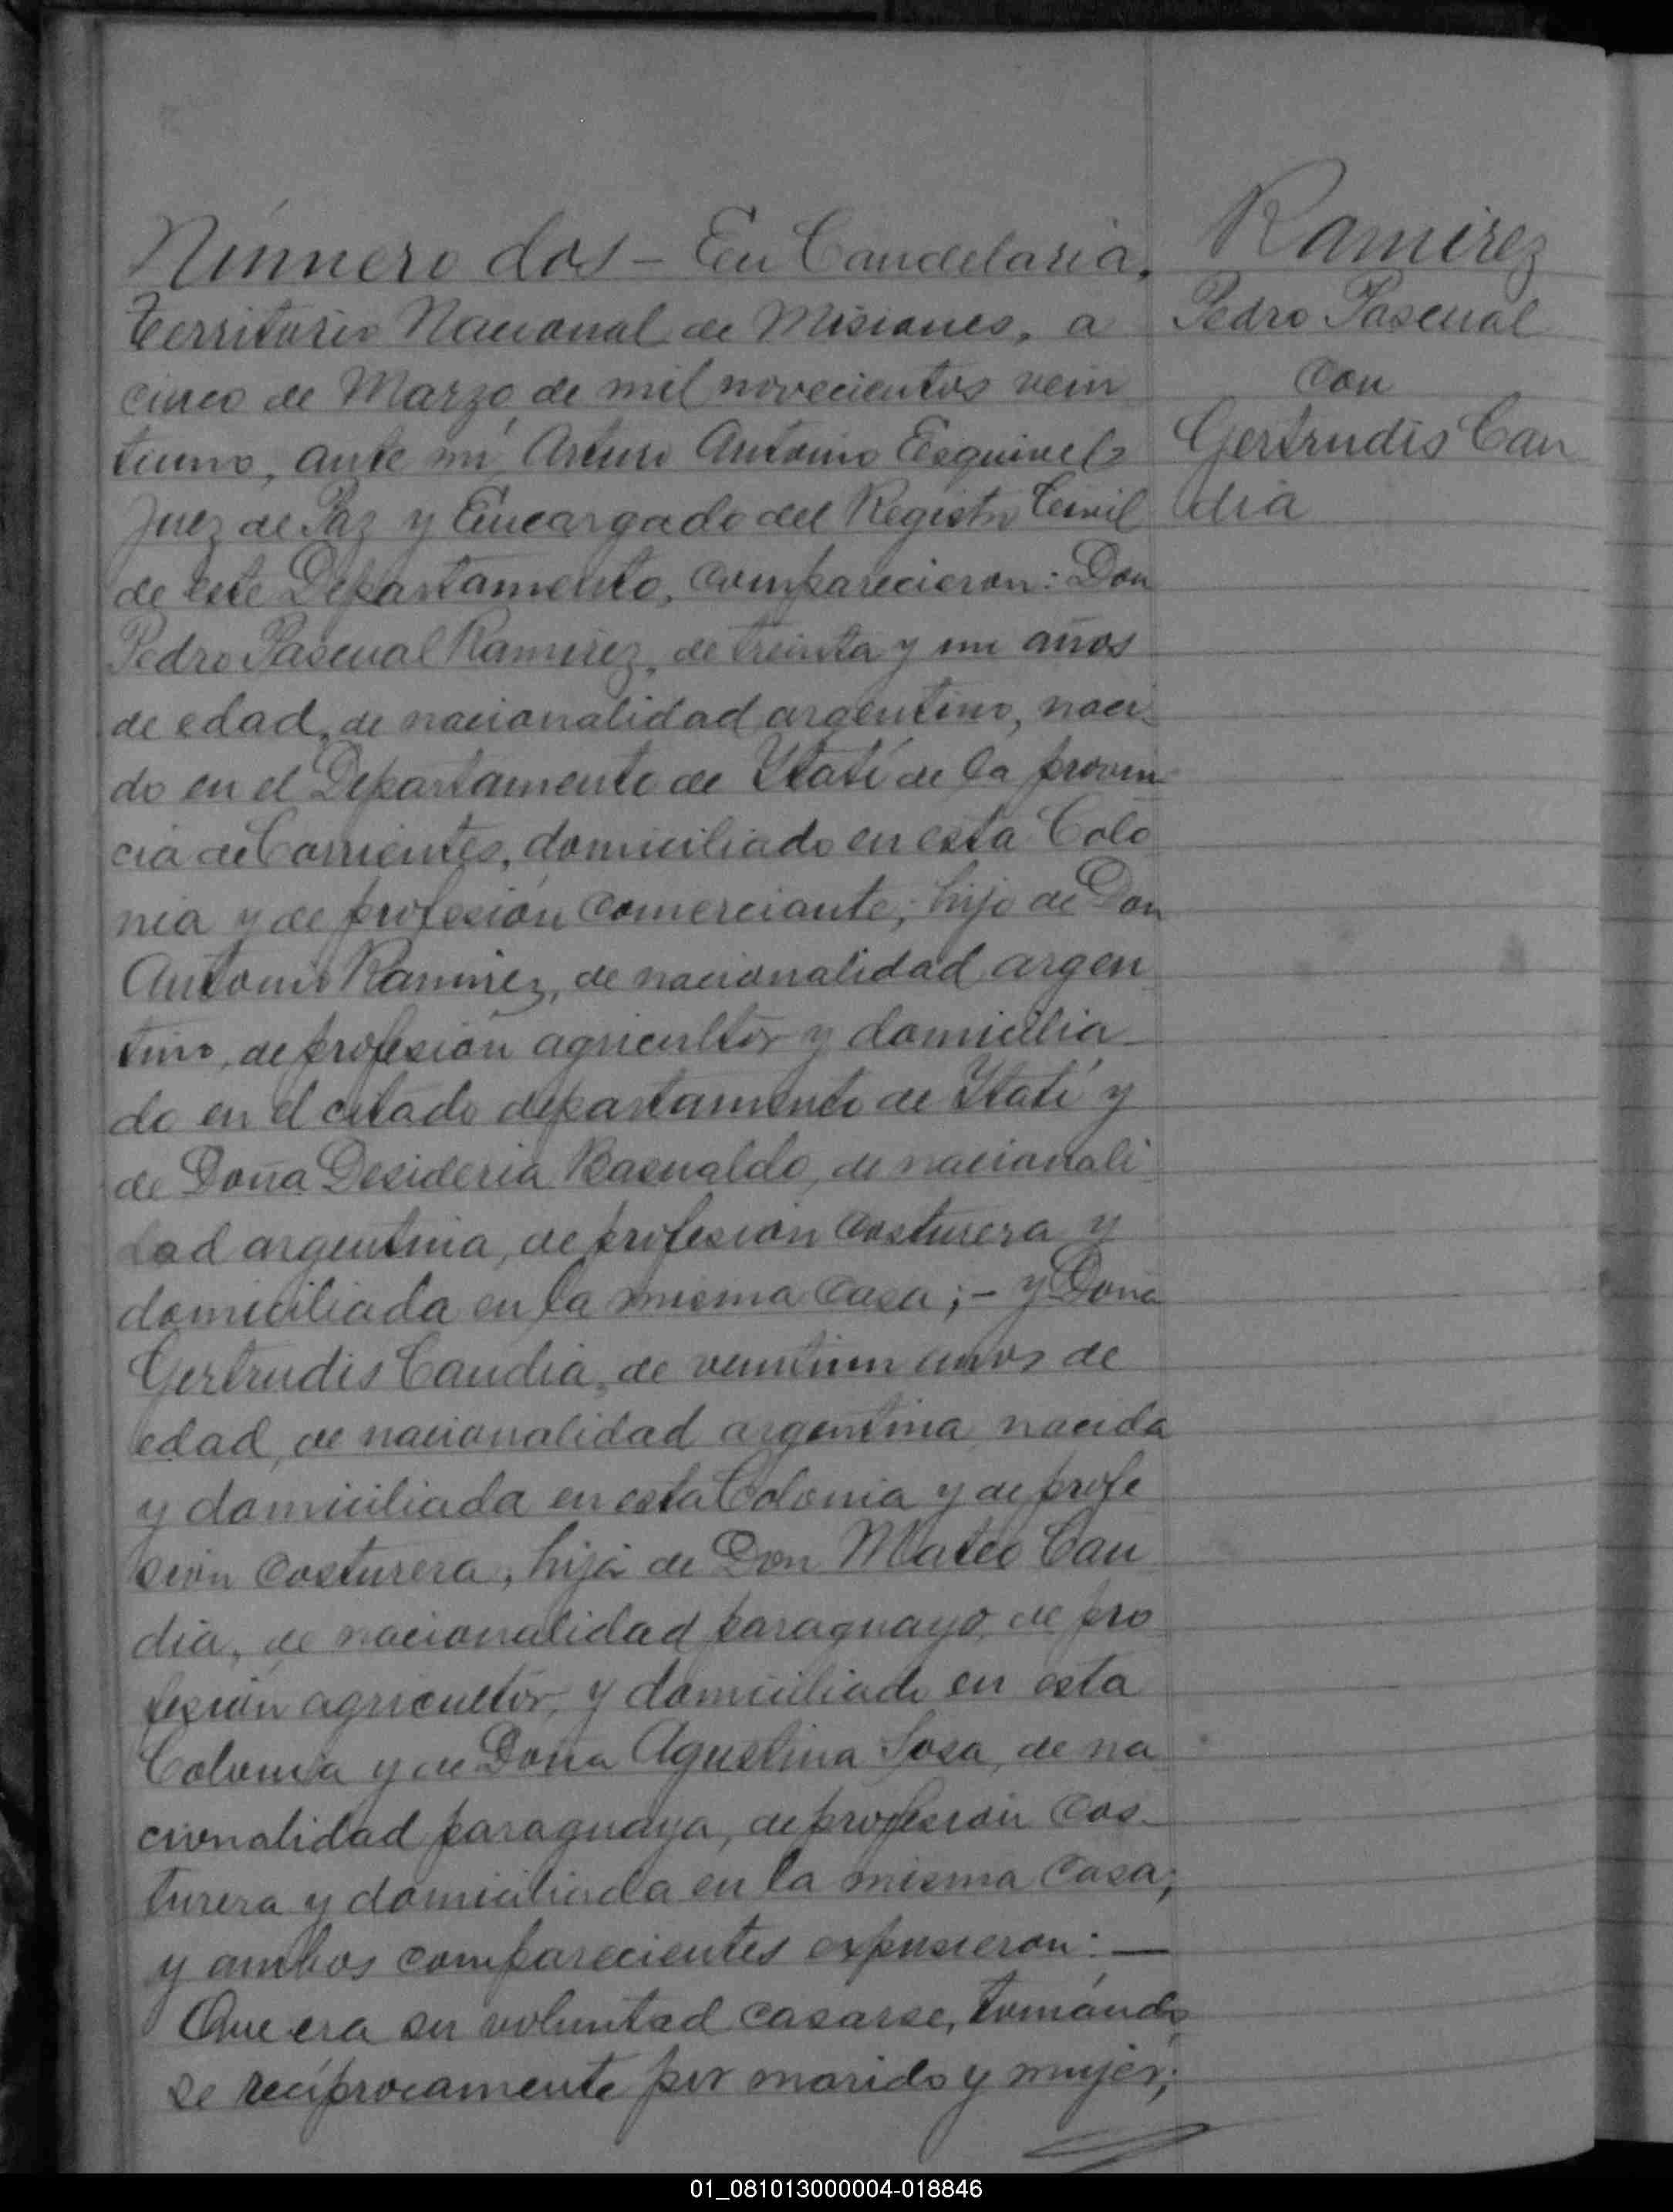 Número dos - En Candelaria,
Territorio Nacional de Misiones, a
cinco de Marzo de mil novecientos vein
tiuno, ante mí Arturo Antonio Esquivel
Juez de Paz y Encargado del Registro Civil
de este Departamento, comparecieron: Don
Pedro Pascual Ramirez, de treinta y un años
de edad, de nacionalidad argentino, naci-
do en el Departamento de Ytatí de la provin
cia de Corrientes, domiciliado en esta Colo
nia y de profesión comerciante; hijo de Don
Antonio Ramirez, de nacionalidad argen
tino, de profesión agricultor y domicilia
do en el citado departamento de Ytatí y
de Doña Desideria Basualdo, de nacionali
dad argentina, de profesión costurera y
domiciliada en la misma casa; - y Doña
Gertrudis Candia, de veintiun años de
edad, de nacionalidad argentina nacida
y domiciliada en esta Colonia y de profe
sión costurera, hija de Don Mateo Can
dia, de nacionalidad paraguayo, de pro
fesión agricultor, y domiciliado en esta
Colonia y de Doña Agustina Sosa, de na
cionalidad paraguaya, de profesión cos-
turera y domiciliada en la misma casa;
y ambos comparecientes expusieron: —
Que era su voluntad casarse, tomándo
se recíprocamente por marido y mujer;
Ramirez
Pedro Pascual
con
Gertrudis Can
dia
01_081013000004-018846